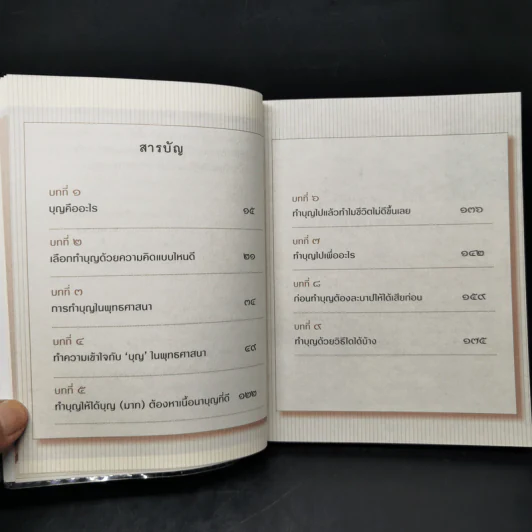 สารบัญ
บทที่ ๑
บุญคืออะไร ๑๕
บทที่ ๒
เลือกทำบุญด้วยความคิดแบบไหนดี ๒๑
บทที่ ๓
การทำบุญในพุทธศาสนา ๓๔
บทที่ ๔
ทำความเข้าใจกับ ‘บุญ’ ในพุทธศาสนา ๔๙
บทที่ ๕
ทำบุญให้ได้บุญ (มาก) ต้องหาเนื้อนาบุญที่ดี ๑๒๒
บทที่ ๖
ทำบุญไปแล้วทำไมชีวิตไม่ดีขึ้นเลย ๑๓๖
บทที่ ๗
ทำบุญไปเพื่ออะไร ๑๔๒
บทที่ ๘
ก่อนทำบุญต้องละบาปให้ได้เสียก่อน ๑๕๙
บทที่ ๙
ทำบุญด้วยวิธีใดได้บ้าง ๑๗๕